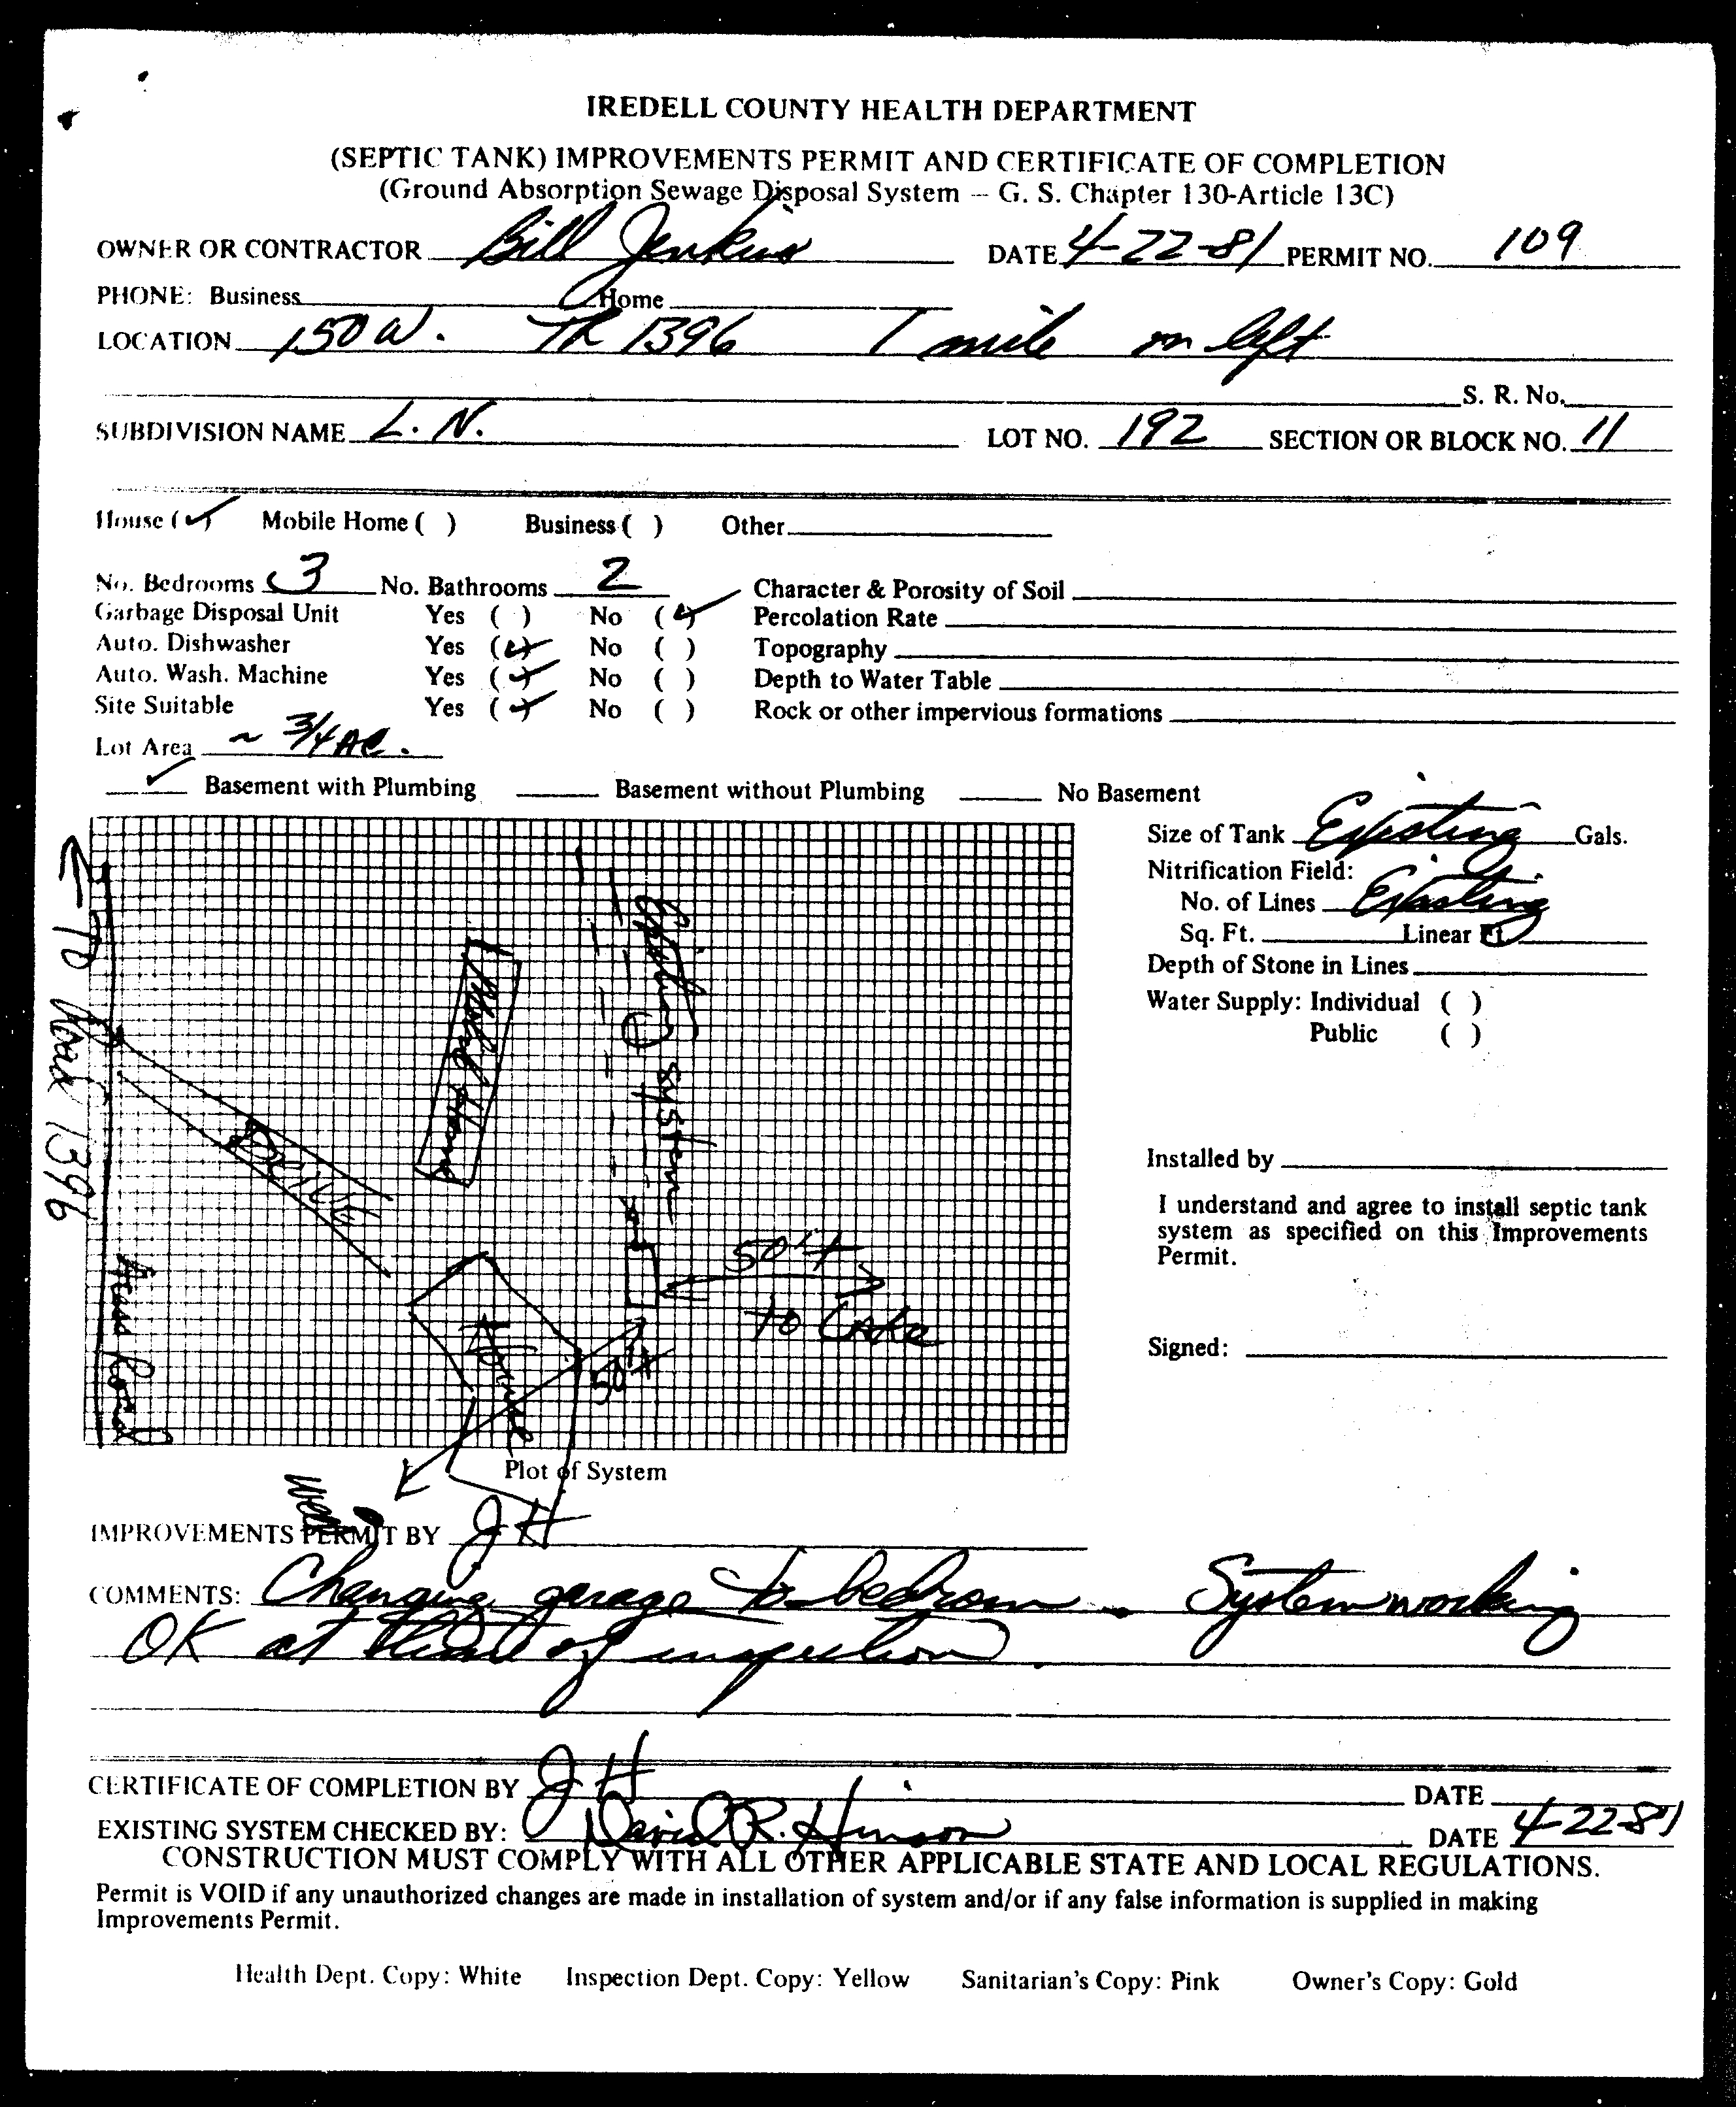 IREDELL COUNTY HEALTH DEPARTMENT
(SEPTIC TANK) IMPROVEMENTS PERMIT AND CERTIFICATE OF COMPLETION
(Ground Absorption Sewage Disposal System — G. S. Chapter 130-Article 13C)
OWNER OR CONTRACTOR Bill Jenkins DATE 4-22-81 PERMIT NO. 109
PHONE: Business Home
LOCATION 150 W. TR 1396 1 mile on left
S. R. No.
SUBDIVISION NAME L. N. LOT NO. 192 SECTION OR BLOCK NO. 11
House (✓) Mobile Home ( ) Business ( ) Other
No. Bedrooms 3 No. Bathrooms 2 Character & Porosity of Soil
Garbage Disposal Unit Yes ( ) No (✓) Percolation Rate
Auto. Dishwasher Yes (✓) No ( ) Topography
Auto. Wash. Machine Yes (✓) No ( ) Depth to Water Table
Site Suitable Yes (✓) No ( ) Rock or other impervious formations
Lot Area ~ 3/4 AC.
✓ Basement with Plumbing Basement without Plumbing No Basement
Size of Tank Existing Gals.
Nitrification Field:
No. of Lines Existing
Sq. Ft. Linear Ft.
Depth of Stone in Lines
Water Supply: Individual ( )
Public ( )
Installed by
I understand and agree to install septic tank
system as specified on this Improvements
Permit.
Signed:
← To 1396
Road
Drive
Mobile Home
Existing system
House
50'±
to Lake
50'±
Well
Plot of System
IMPROVEMENTS PERMIT BY JH
COMMENTS: Changing garage to bedroom. System working
OK at time of inspection.
CERTIFICATE OF COMPLETION BY JH DATE
EXISTING SYSTEM CHECKED BY: David R. Hinson DATE 4-22-81
CONSTRUCTION MUST COMPLY WITH ALL OTHER APPLICABLE STATE AND LOCAL REGULATIONS.
Permit is VOID if any unauthorized changes are made in installation of system and/or if any false information is supplied in making
Improvements Permit.
Health Dept. Copy: White Inspection Dept. Copy: Yellow Sanitarian's Copy: Pink Owner's Copy: Gold